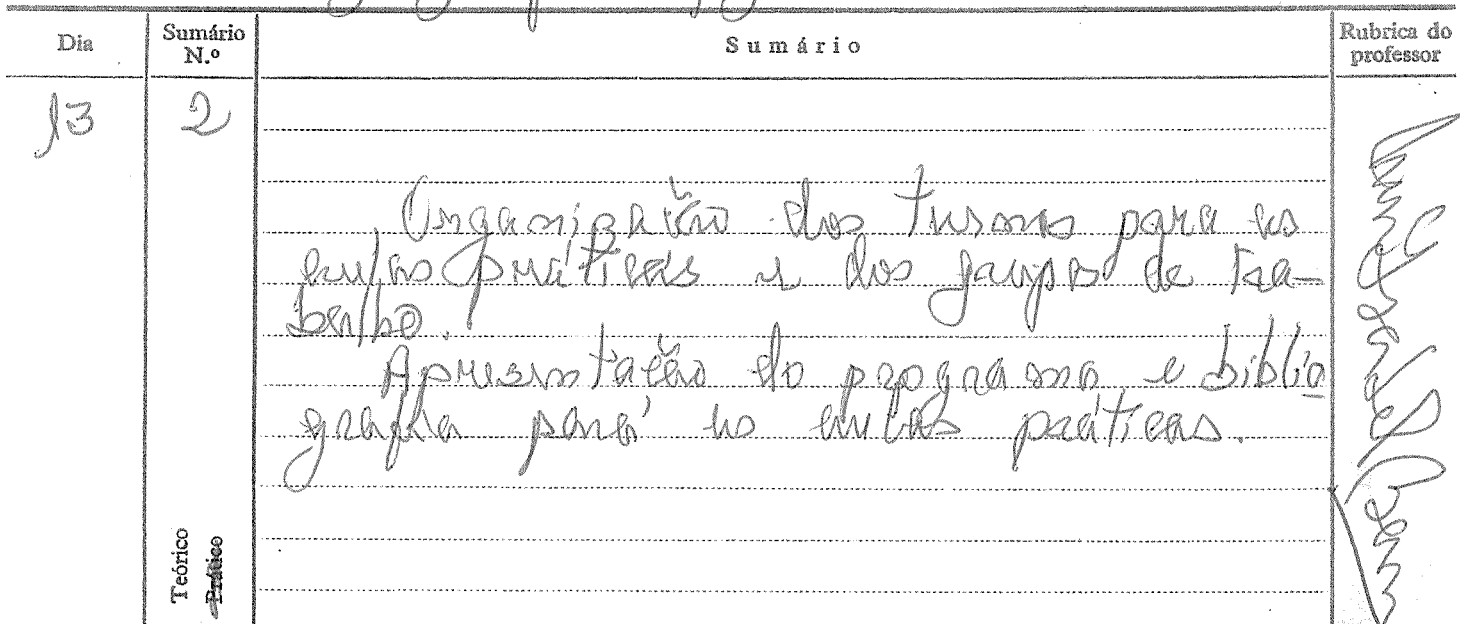 Dia
Sumário N.º
Sumário
Rubrica do professor
13
2
Organização dos turmas para as
aulas práticas e dos grupos de tra-
balho.
Apresentação do programa e biblio
grafia para as aulas práticas.
Teórico
Prático